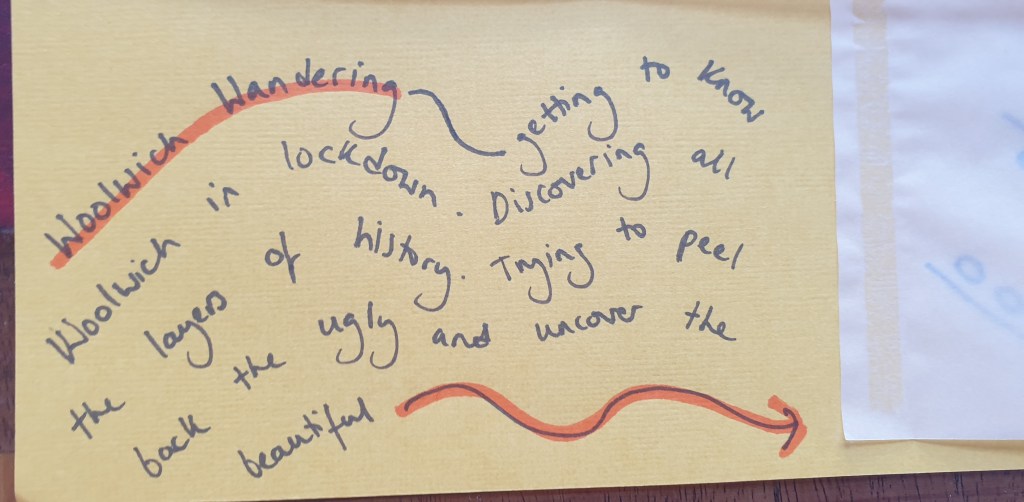 Woolwich Wandering getting to know
Woolwich in lockdown. Discovering all
the layers of history. Trying to peel
back the ugly and uncover the
beautiful